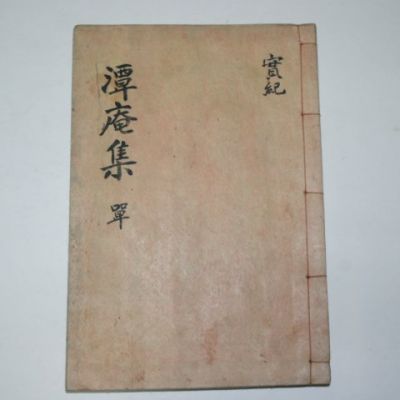 實紀
潭庵集 單